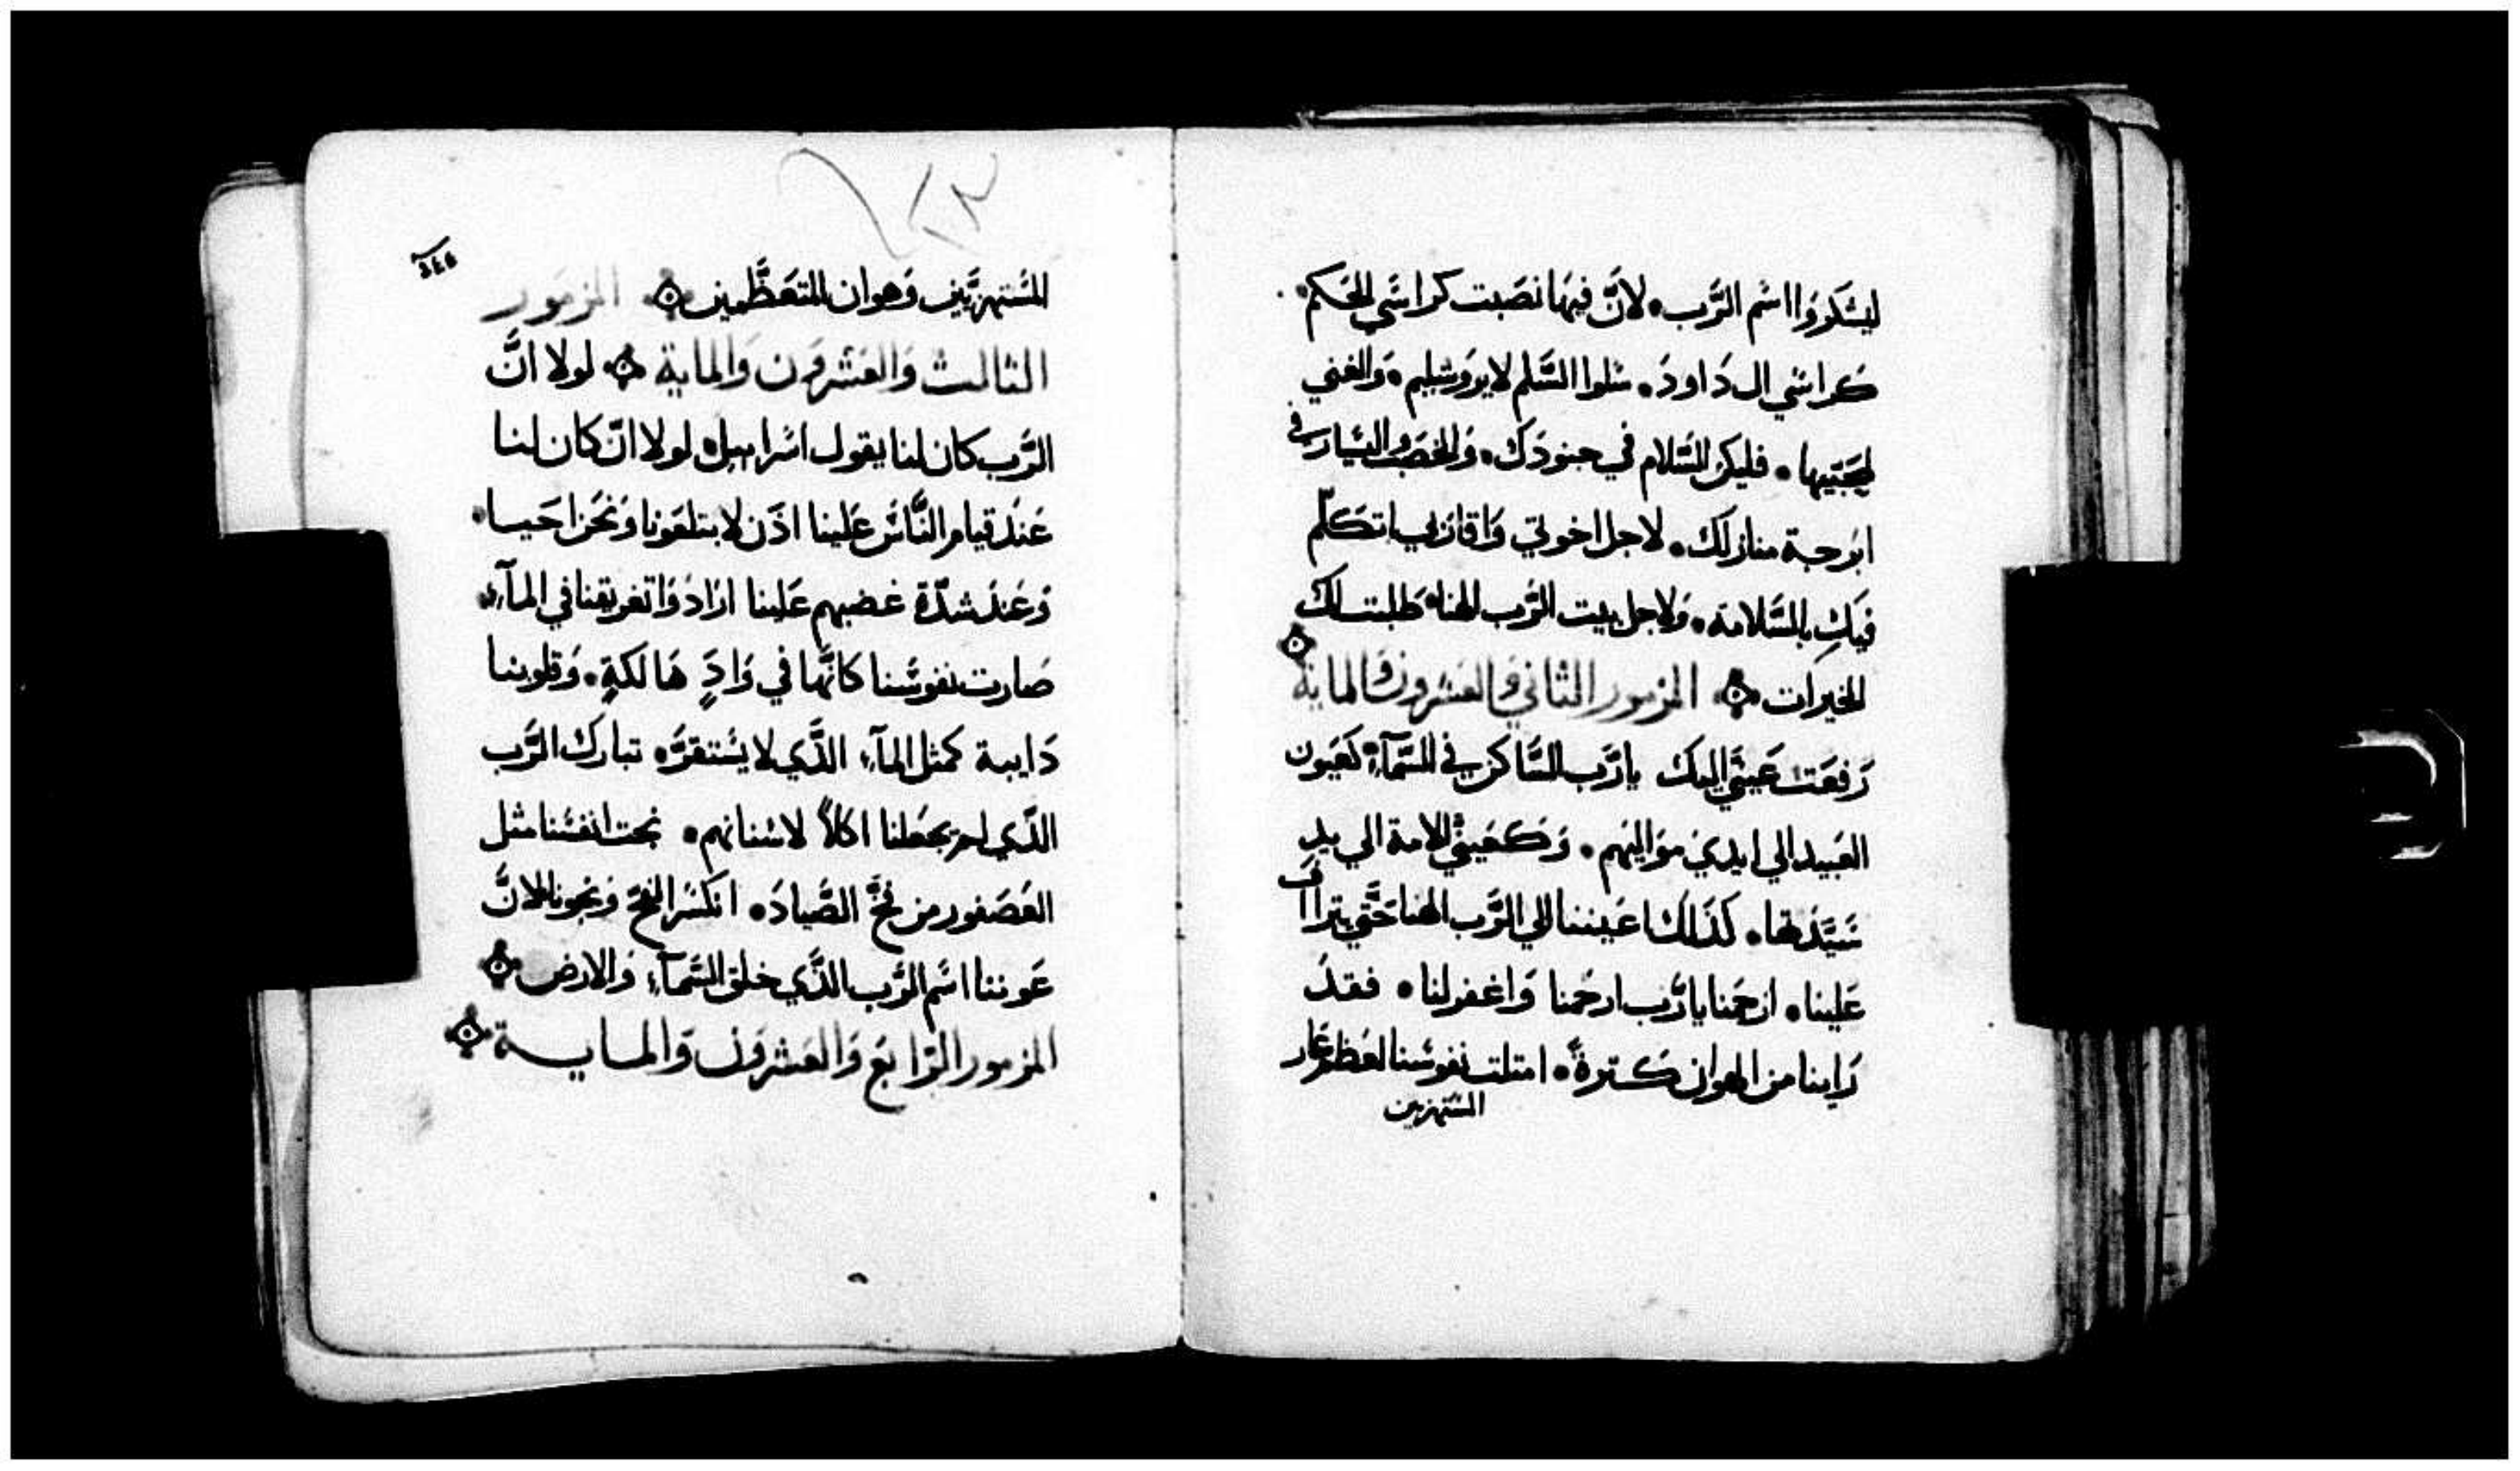 ليشكروا اسم الرَّب. لانَّ فيها نصبت كراسَي الحكم.
كراسي ال دَاودَ. سَلوا السَّلم لايروشليم. وَالغني
لمحبَّيها. فليكن السَّلام في جنودَك. وَالخصب واليسَار في
ابرجة منازلك. لاجل اخوتي وَاقاربي اتكلّم
فيكِ بالسَّلامة. وَلاجل بيت الرَّب الهنا طلبت لك
الخيرات. المزمور الثاني وَالعشرون وَالماية
رَفعَت عَينيَّ اليك يا رَب السَّاكن في السَّمآءِ كعَيون
العَبيد الي ايدي مَواليهم. وَكعَينيَّ الامة الي يد
سَيّدَتها. كذَلك اعَيننا الي الرَّب الهنا حَتَّي يتراأف
عَلينا. ارحَمنا يا رَّب ارحمنا وَاغفر لنا. فقدَ
رَاينا من الهوان كثرة. امتلت نفوسَنا لعظم عَار
المستهزيين
المسُتهزيَّين وَهوان المتعَظَّمين. المزمور
الثالث وَالعَشرون وَالماية. لولا انَّ
الرَّب كان لنا يقول اسَراييل. لولا انَّ كان لنا
عَندَ قيام النَّاسَ عَلينا اذَن لابتلعَونا وَنحَن احَيا.
وَعَندَ شدَّة غضبهم عَلينا ارَادوَا تغريقنا في المآءِ.
صَارت نفوسَنا كانَّها في وَادٍ هَالكةٍ. وَقلوبنا
دَايبة كمثل المآءِ الذَّي لا يسَتقرَّ. تبارك الرَّب
الذَّي لم يجعَلنا اكلاً لاسنانهم. نجت انفسَنا مثل
العُصَفور من فخَّ الصَّيادَ. انكسَر الفخَّ وَنجَونا لانَّ
عَوننا اسَم الرَّب الذَّي خلق السَّمآءِ وَالارض
المزمور الرَّابعَ وَالعَشروَن وَالماية